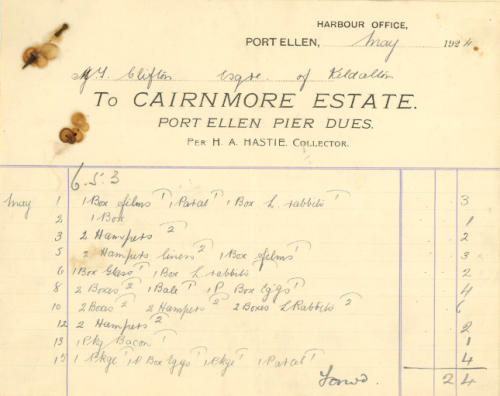 HARBOUR OFFICE,
PORT ELLEN, May 1924
Clifton Esqre. of Kildalton
To CAIRNMORE ESTATE.
PORT ELLEN PIER DUES.
PER H. A. HASTIE. COLLECTOR.
6.5.3
May 1 1 Box films 1 1 Parcel 1 1 Box L. rabbits 1 3
2 1 Box 1
3 2 Hampers 2 2
5 2 Hampers linens 2 1 Box films 1 3
6 1 Box Glass 1 1 Box L rabbits 2
8 2 Boxes 2 1 Bale 1 1 P. Box Eggs 1 4
10 2 Boxes 2 2 Hampers 2 2 Boxes L Rabbits 2 6
12 2 Hampers 2 2
13 1 Pkg Bacon 1 1
15 1 Pkge 1 1 P Box Eggs 1 1 Pkge 1 1 Parcel 1 4
Forwd. 2 4